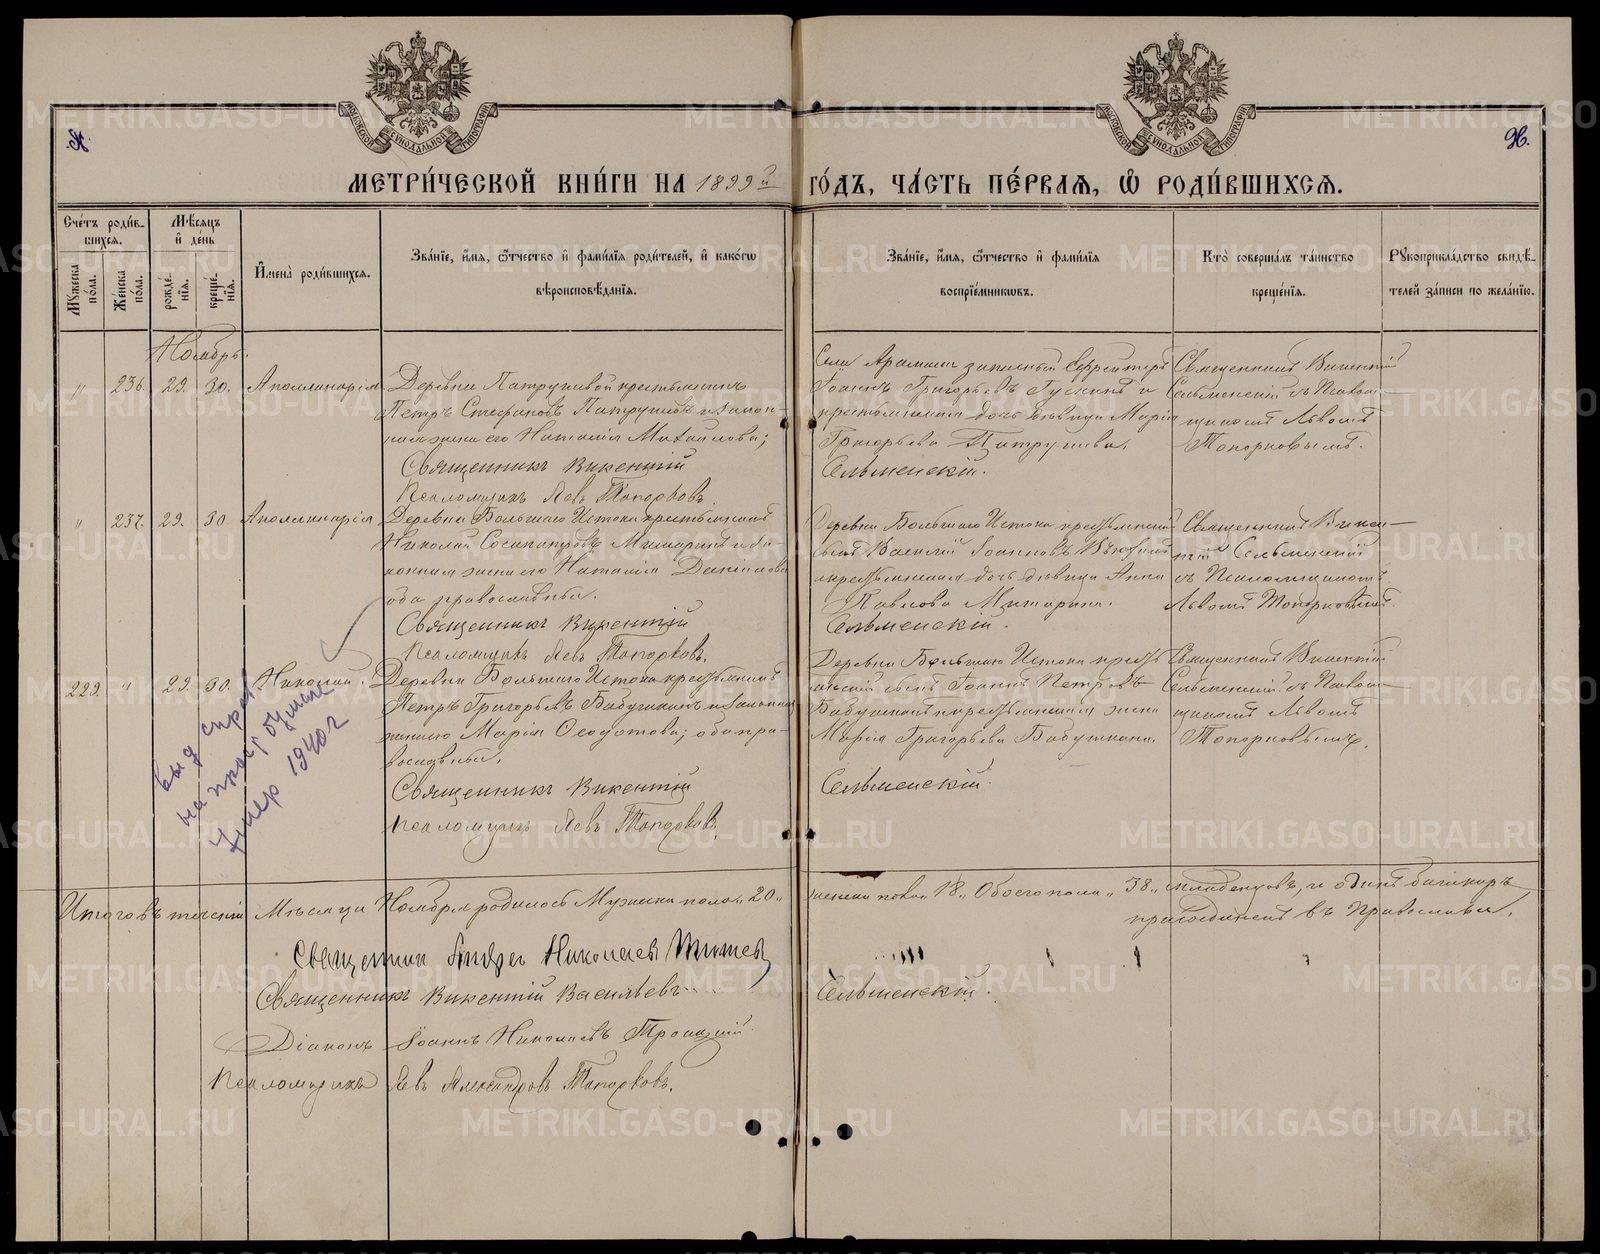 МЕТРИ́ЧЕСКОЙ КНИ́ГИ НА 1899й ГО́ДЪ, ЧА́СТЬ ПЕ́РВАЯ, Ѽ РОДИ́ВШИХСЯ.
Сче́тъ роди́в-
шихся.
Мꙋ́жеска по́ла.
Же́нска по́ла.
Мѣ́сяцъ и҆ де́нь
рожде́нїя.
креще́нїя.
И҆мена̀ роди́вшихся.
Зва́нїе, и҆́мя, ѻ҆́тчество и҆ фами́лїя роди́телей, и҆ како́гѡ
вѣроисповѣ́данїя.
Зва́нїе, и҆́мя, ѻ҆́тчество и҆ фами́лїя
воспрїе́мникѡвъ.
Кто̀ соверша́лъ та́инство
креще́нїя.
Рꙋкоприкла́дство свидѣ́-
телей за́писи по жела́нїю.
Ноябрь.
" 236. 29. 30. Аполлинарія
Деревни Патрушевой крестьянинъ
Петръ Стефановъ Патрушевъ и закон-
ная жена его Наталія Михайлова;
Священникъ Викентій
Псаломщикъ Левъ Топорковъ.
Села Арамили запасный Ефрейторъ
Іоаннъ Григорьевъ и
крестьянская дочь дѣвица Марія
Григорьева Патрушева.
Сельменскій.
Священникъ Викентій
Сельменскій съ Псалом-
щикомъ Львомъ
Топорковымъ.
" 237. 29. 30. Аполлинарія
Деревни Большаго Истока крестьянинъ
Николай Сосипатровъ Мишаринъ и за-
конная жена его Наталія Данилова
оба православные.
Священникъ Викентій
Псаломщикъ Левъ Топорковъ.
Деревни Большаго Истока крестьянскій
сынъ Василій Іоанновъ
и крестьянская дочь дѣвица Анна
Павлова Мишарина.
Сельменскій.
Священникъ Викен-
тій Сельменскій
съ Псаломщикомъ
Львомъ Топорковымъ.
229. " 29. 30. Николай.
Деревни Большаго Истока крестьянинъ
Петръ Григорьевъ Бабушкинъ и законная
жена его Марія Ѳеодотова; оба пра-
вославные.
Священникъ Викентій
Псаломщикъ Левъ Топорковъ.
Деревни Большаго Истока кресть-
янскій сынъ Іоаннъ Петровъ
Бабушкинъ и крестьянская жена
Марія Григорьева Бабушкина.
Сельменскій.
Священникъ Викентій
Сельменскій съ Псалом-
щикомъ Львомъ
Топорковымъ.
выд справ.
1940 г
Итого въ теченіи Мѣсяца Ноября родилось Мужска пола " 20 " Женска пола " 18 " Обоего пола " 38 " младенцовъ, и одинъ башкиръ
присоединенъ въ Православіе.
Священник Андрей Николаев
Священникъ Викентій Васильевъ Сельменскій.
Діаконъ Іоаннъ Николаевъ Троицкій
Псаломщикъ Левъ Александровъ Топорковъ.
METRIKI.GASO-URAL.RU